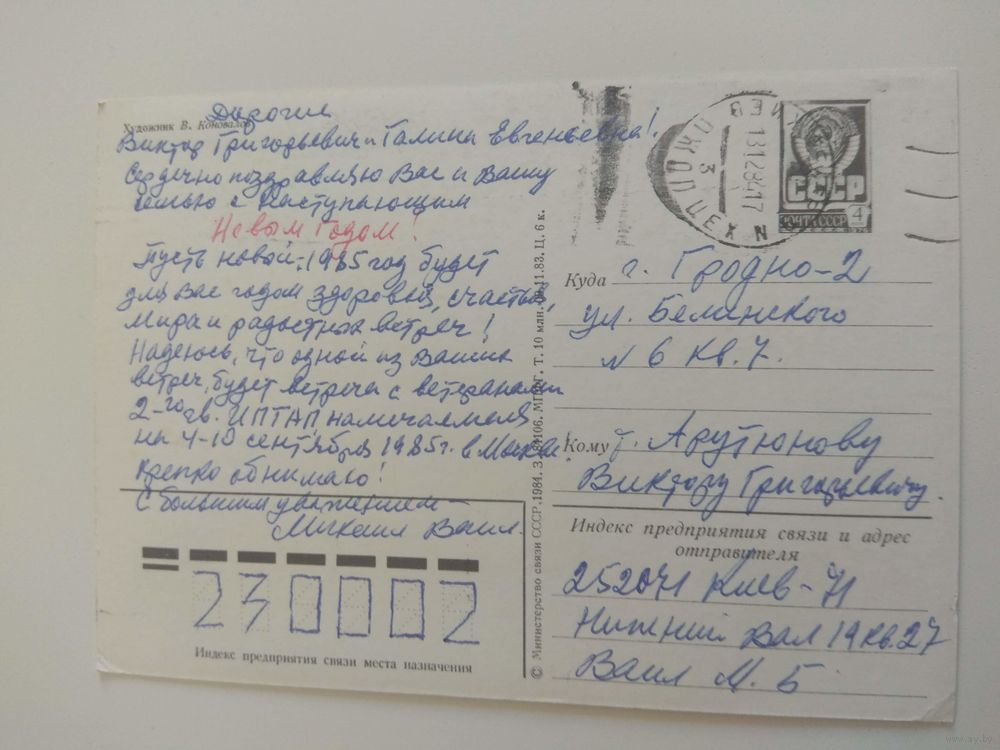 Художник В. Коновалов
Дорогие
Виктор Григорьевич и Галина Евгеньевна!
Сердечно поздравляю Вас и Вашу
семью с Наступающим
Новым Годом!
Пусть новой 1985 год будет
для Вас годом здоровья, счастья,
мира и радостных встреч!
Надеюсь, что одной из Ваших
встреч, будет встреча с ветеранами
2-го гв. ИПТАП намечаемся
на 4-10 сентября 1985 г. в Москве.
Крепко обнимаю!
С большим уважением
Михаил Ваил.
230002
Индекс предприятия связи места назначения
© Министерство связи СССР, 1984. З. 106. МПФГ. Т. 10 млн. 11.83. Ц. 6 к.
КИЕВ
131284 17
3
ПОЧТА СССР
4
1976
Куда г. Гродно-2
ул. Белинского
N 6 кв. 7.
Кому т. Арутюнову
Виктору Григорьевичу.
Индекс предприятия связи и адрес
отправителя
252071 Киев-71
Нижний Вал 19 кв. 27
Ваил М. Б
www.ay.by